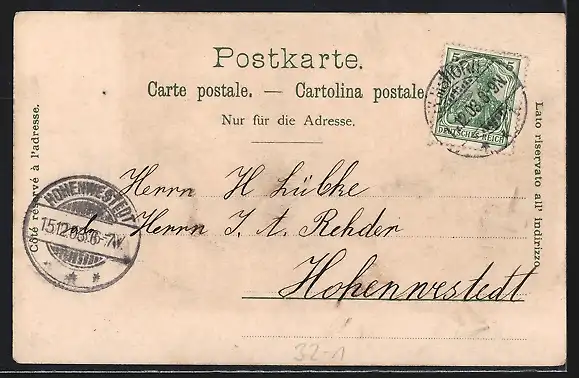 Postkarte.
Carte postale. — Cartolina postale
Nur für die Adresse.
Côté réservé à l'adresse.
Lato riservato all' indirizzo.
5 5
DEUTSCHES REICH
Herrn H Lübke
adr. Herrn J. A. Rehder
Hohenwestedt
HOHENWESTEDT
15.12.03.6-7N.
32-1